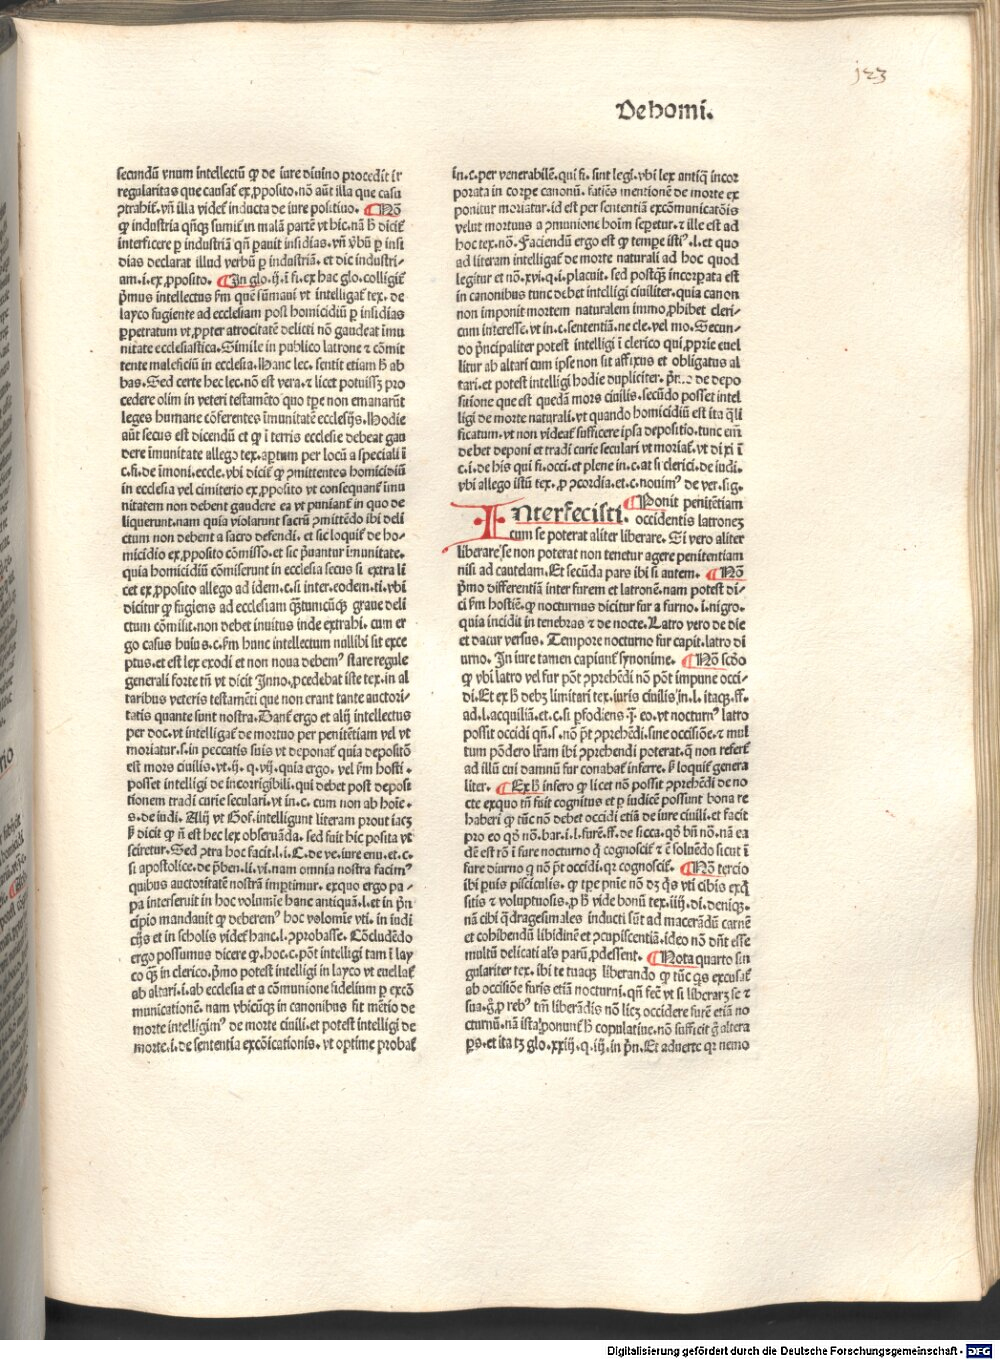 123
De homi.
secundū vnum intellectū ꝙ de iure diuino procedit ir
regularitas que causat̄ ex ꝓposito. nō aūt illa que casu
ꝯtrahit̄. vn̄ illa videt̄ inducta de iure positiuo. ¶ Nō
ꝙ industria qn̄qꝫ sumit̄ in malā partē vt hic. nā ħ dicit̄
interficere ꝑ industriā qn̄ ꝑauit insidias. vn̄ v̄bū ꝑ insi
dias declarat illud verbū ꝑ industriā. et dic industri-
am. i. ex ꝓposito. ¶ In glo. ij. ī fi. ex hac glo. colligit̄
pͥmus intellectus ẜm quē sūmaui vt intelligat̄ tex. de
layco fugiente ad ecclesiam post homicidiū ꝑ insidias
ꝑpetratum vt ꝓpter atrocitatē delicti nō gaudeat īmu
nitate ecclesiastica. Simile in publico latrone ⁊ cōmit
tente maleficiū in ecclesia. Hanc lec. sentit etiam ħ ab
bas. Sed certe hec lec. nō est vera. ⁊ licet potuissꝫ pro
cedere olim in veteri testamēto quo tꝑe non emanarūt
leges humane cōferentes īmunitatē ecclesijs. Hodie
aūt secus est dicendū et ꝙ ī terris ecclesie debeat gau
dere īmunitate allego tex. aꝑtum per locū a speciali ī
c. fi. de īmoni. eccle. vbi dicit̄ ꝙ ꝯmittentes homicidiū
in ecclesia vel cimiterio ex ꝓposito vt consequant̄ īmu
nitatem non debent gaudere ea vt puniant̄ in quo de
liquerunt. nam quia violarunt sacrū ꝯmittēdo ibi deli
ctum non debent a sacro defendi. et sic loquit̄ de ho-
micidio ex ꝓposito cōmisso. et sic pͥuantur īmunitate.
quia homicidiū cōmiserunt in ecclesia secus si extra li
cet ex ꝓposito allego ad idem. c. si inter. eodem. ti. vbi
dicitur ꝙ fugiens ad ecclesiam qͣꝫtūcūqꝫ graue deli
ctum cōmisit. non debet inuitus inde extrahi. cum er
go casus huius. c. ẜm hunc intellectum nullibi sit exce
ptus. et est lex exodi et non noua debemꝰ stare regule
generali forte tn̄ vt dicit Inno. ꝓcedebat iste tex. in al
taribus veteris testamēti que non erant tante auctori-
tatis quante sunt nostra. Dant̄ ergo et alij intellectus
per doc. vt intelligat̄ de mortuo per penitētiam vel vt
moriatur. s. in peccatis suis vt deponat̄ quia depositō
est mors ciuilis. vt. ij. q. vij. quia ergo. vel ẜm hosti.
posset intelligi de incorrigibili. qui debet post deposi
tionem tradi curie seculari. vt in. c. cum non ab hoīe.
s. de iudi. Alij vt Gof. intelligunt literam prout iacꝫ
⁊ dicit ꝙ n̄ est hec lex obseruāda. sed fuit hic posita vt
sciretur. Sed ꝯtra hoc facit. l. i. C. de ve. iure enu. et. c.
si apostolice. de p̄ben. li. vi. nam omnia nostra facimꝰ
quibus auctoritatē nostrā imptimur. exquo ergo pa-
pa interseruit in hoc volumīe hanc antiquā. l. et in pͥn
cipio mandauit ꝙ deberemꝰ hoc volomīe vti. in iudi
cijs et in scholis videt̄ hanc. l. ꝯprobasse. Cōcludēdo
ergo possumus dicere ꝙ. hoc. c. pōt intelligi tam ī lay
co qͣꝫ in clerico. pͥmo potest intelligi in layco vt euellat̄
ab altari. i. ab ecclesia et a cōmunione fidelium ꝑ excō
municationē. nam vbicūqꝫ in canonibus fit mētio de
morte intelligimꝰ de morte ciuili. et potest intelligi de
morte. i. de sententia excōicationis. vt optime probat̄
in. c. per venerabilē. qui fi. sint legi. vbi lex antiq̄ incor
porata in corꝑe canonū. faciēs mentionē de morte ex
ponitur moriatur. id est per sententiā excōmunicatōis
velut mortuus a ꝯmunione hoīm seꝑetur. ⁊ ille est ad
hoc tex. nō. Faciendū ergo est ꝙ temꝑe istiꝰ. l. et quo
ad literam intelligat̄ de morte naturali ad hoc quod
legitur et nō. xvi. q. i. placuit. sed postqͣꝫ incorꝑata est
in canonibus tunc debet intelligi ciuiliter. quia canon
non imponit mortem naturalem immo ꝓhibet cleri-
cum interesse. vt in. c. sententiā. ne cle. vel mo. Secun-
do pͥncipaliter potest intelligi ī clerico qui ꝓprie euel
litur ab altari cum ipse non sit affixus et obligatus al
tari. et potest intelligi hodie dupliciter. de depo
sitione que est quedā mors ciuilis. secūdo posset intel
ligi de morte naturali. vt quando homicidiū est ita q̄li
ficatum. vt non videat̄ sufficere ipsa depositio. tunc em̄
debet deponi et tradi curie seculari vt moriat̄. vt dixi ī
c. i. de his qui fi. occi. et plene in. c. at si clerici. de iudi.
vbi allego istū tex. ꝓ ꝯcordia. et. c. nouimꝰ de ver. sig.
INterfecisti. ¶ Ponit penitētiam
occidentis latronez
cum se poterat aliter liberare. Si vero aliter
liberare se non poterat non tenetur agere penitentiam
nisi ad cautelam. Et secūda pars ibi si autem. ¶ Nō
pͥmo differentiā inter furem et latronē. nam potest di-
ci ẜm hostiē. ꝙ nocturnus dicitur fur a furno. i. nigro.
quia incidit in tenebras ⁊ de nocte. Latro vero de die
et datur versus. Tempore nocturno fur capit. latro di
urno. In iure tamen capiunt̄ synonime. ¶ Nō scd̄o
ꝙ vbi latro vel fur pōt ꝯprehēdi nō pōt impune occi-
di. Et ex ħ debꝫ limitari tex. iuris ciuilis in. l. itaqꝫ. ff.
ad. l. acquiliā. et. c. si ꝑfodiens. ī. eo. vt nocturnꝰ latro
possit occidi qn̄. s. nō pōt ꝯprehēdi. sine occisiōe. ⁊ mul
tum pōdero lr̄am ibi ꝯprehendi poterat. q̄ non refert̄
ad illū cui damnū fur conabat̄ inferre. ⁊ loquit̄ genera
liter. ¶ Ex ħ infero ꝙ licet nō possit ꝯprehēdi de no-
cte exquo tn̄ fuit cognitus et ꝑ iudicē possunt bona re
haberi ꝙ tūc nō debet occidi etiā de iure ciuili. et facit
pro eo qd̄ nō. bar. i. l. furē. ff. de sicca. qd̄ bn̄ nō. nā ea
dē est rō ī fure nocturno q̄ cognoscit̄ ⁊ ē soluēdo sicut ī
fure diurno q̄ nō pōt occidi. qꝛ cognoscit̄. ¶ Nō tercio
ibi puis pisciculis. ꝙ tꝑe pn̄ie nō dꝫ qͥs vti cibis exqͥ
sitis ⁊ voluptuosis. ꝓ ħ vide bonū tex. iiij. di. deniqꝫ.
nā cibi q̄dragesimales inducti sūt ad macerādū carnē
et cohibendū libidinē et ꝯcupiscentiā. ideo nō dn̄t esse
multū delicati al̄s parū ꝓdessent. ¶ Nota quarto sin
gulariter tex. ibi te tuaqꝫ liberando ꝙ tūc qͥs excusat̄
ab occisiōe furis etiā nocturni. qn̄ fecͭ vt si liberarꝫ se ⁊
sua. g̊ ꝓ rebꝰ tm̄ liberādis nō licꝫ occidere furē etiā no
cturnū. nā ista ponunt̄ ħ copulatiue. nō sufficit g̊ altera
ꝑs. et ita tꝫ glo. xxiij. q. iij. in pͥn. Et aduerte qꝛ nemo
Digitalisierung gefördert durch die Deutsche Forschungsgemeinschaft - DFG